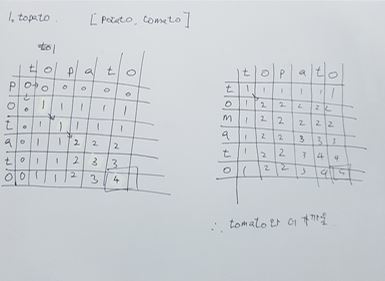 1. topato. [potato, tomato]
t o p a t o
p 0 0 0 0 0 0
o 0 1 1 1 1 1
t 1 1 1 1 1
a 0 1 1 2 2 2
t 0 1 1 2 3 3
o 0 1 1 2 3 4
t o p a t o
t 1 1 1 1 1 1
o 1 2 2 2 2 2
m 1 2 2 2 2 2
a 1 2 2 3 3 3
t 1 2 2 3 4 4
o 1 2 2 3 4 5
∴ tomato 와 더